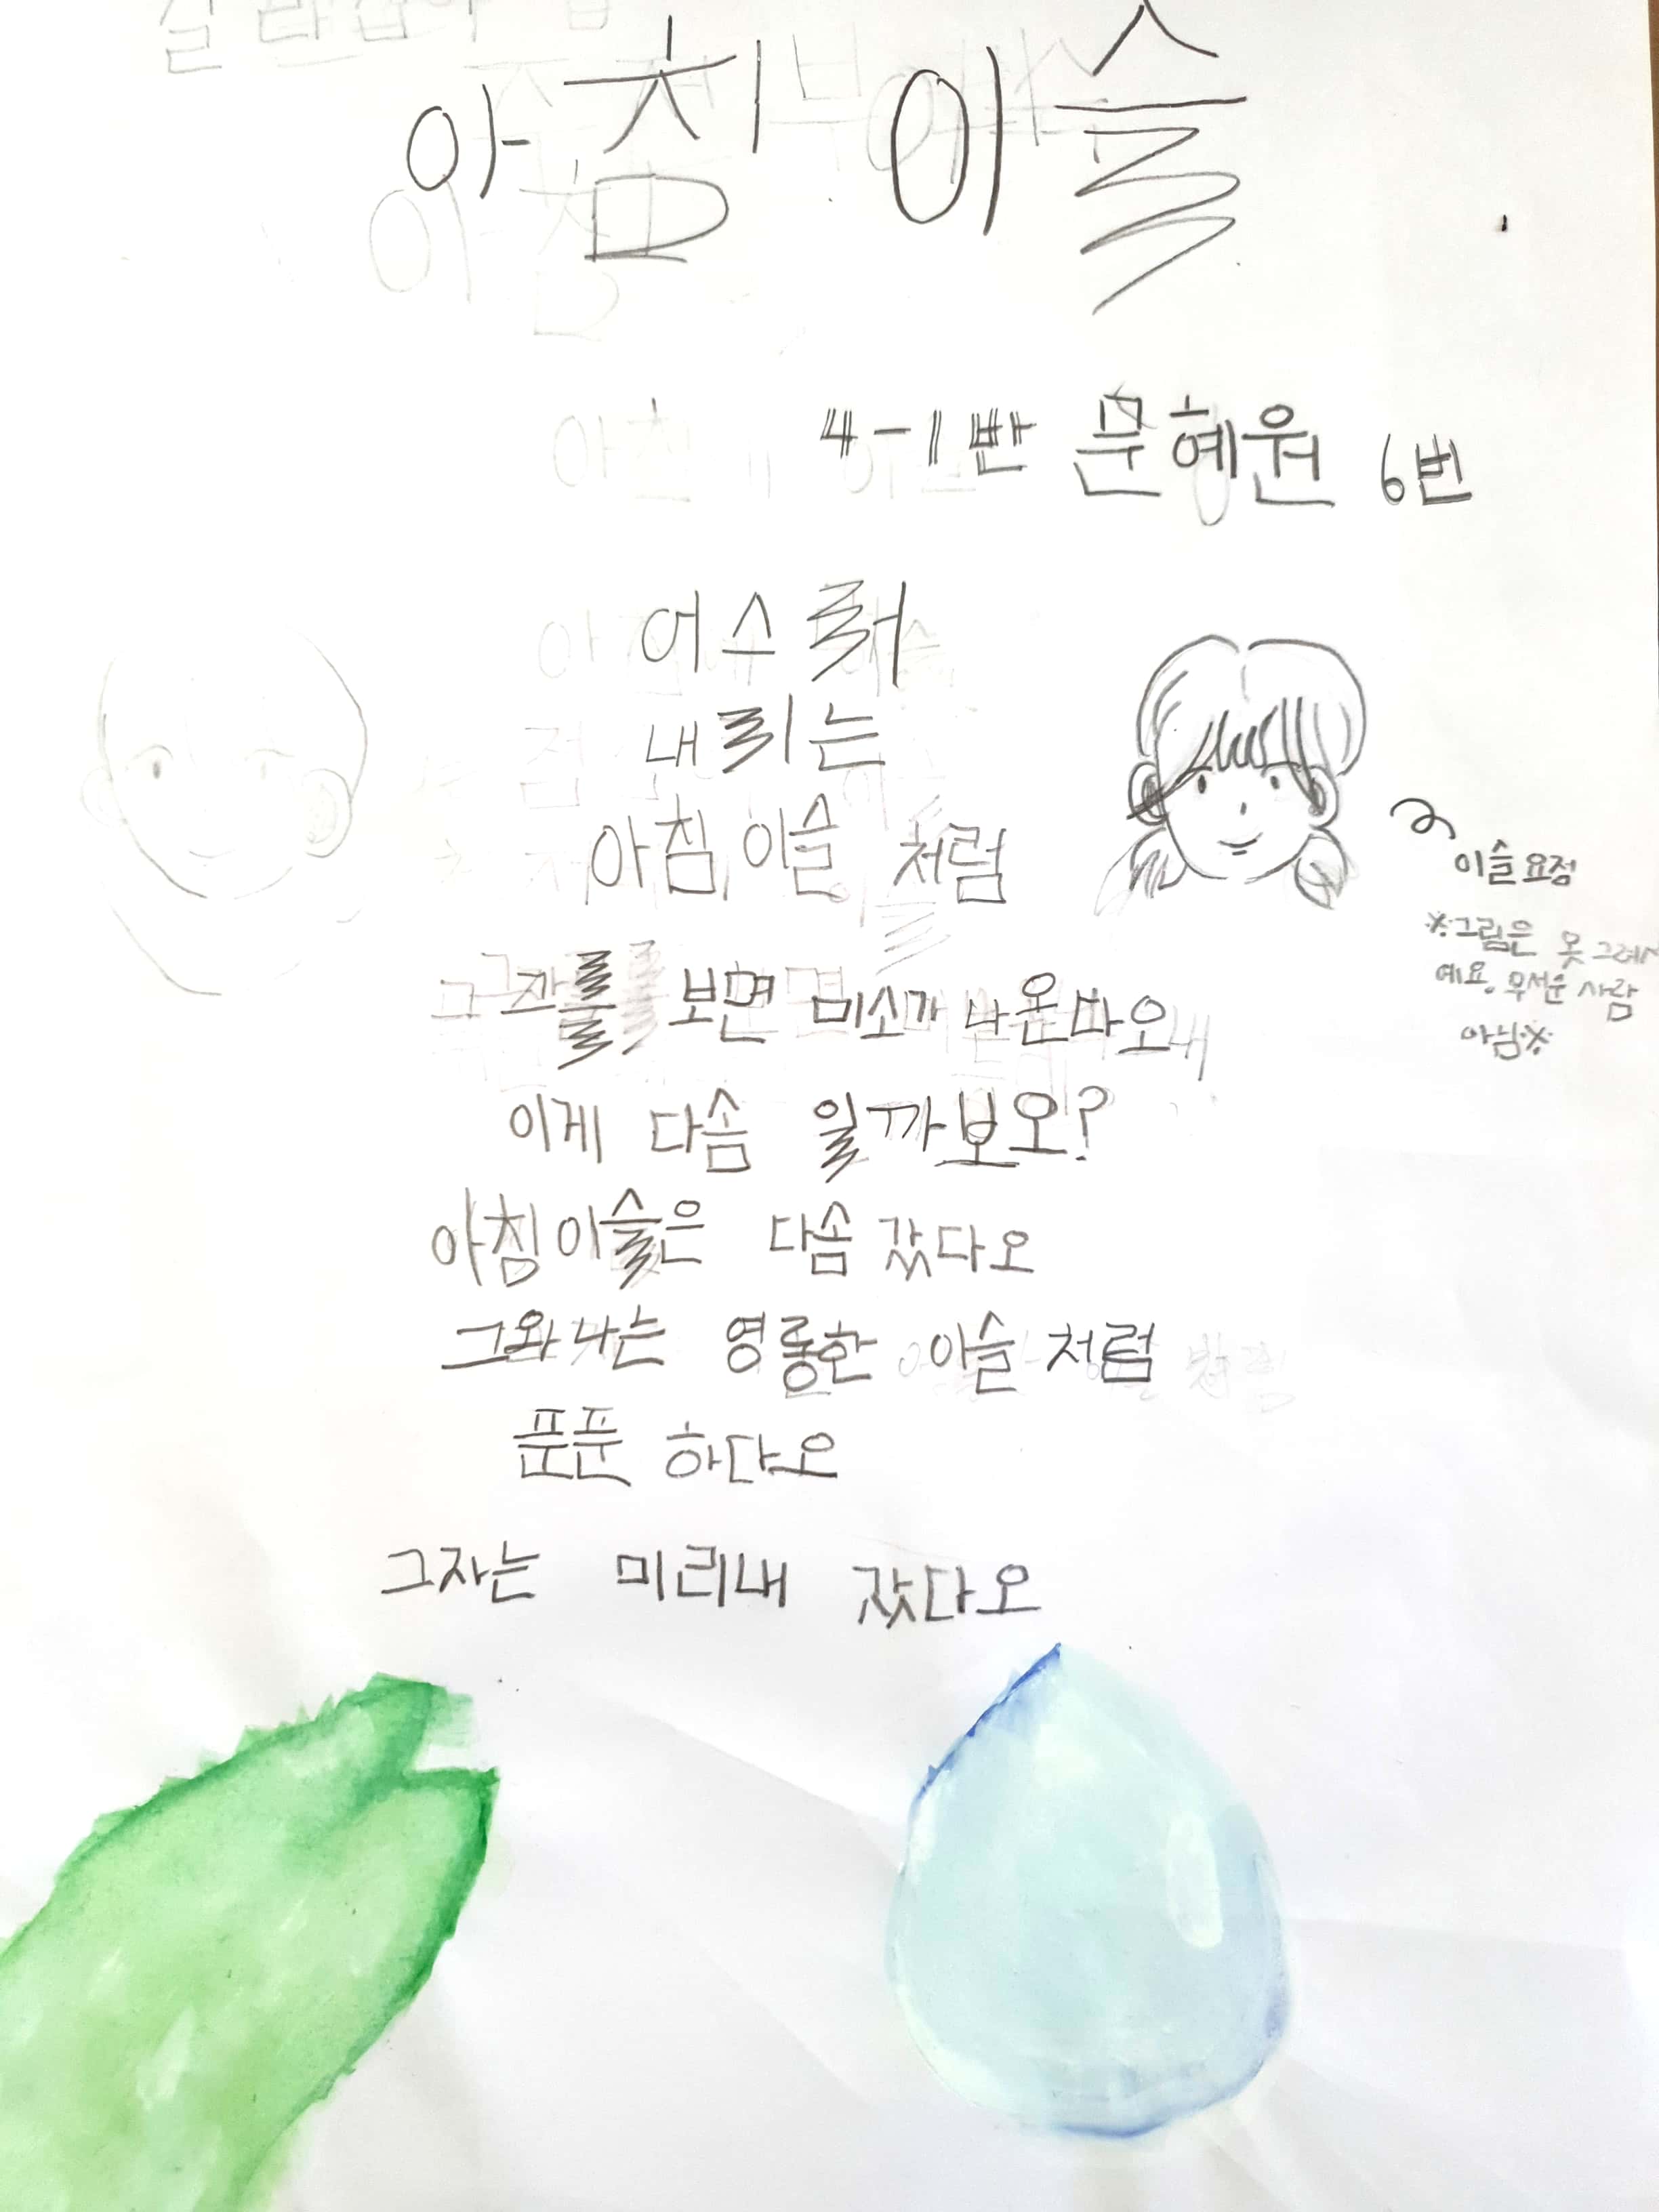 아침 이슬
4-1반 문혜원 6번
어수뤄
내리는
아침 이슬 처럼
그자를 보면 미소가 나온다오
이게 다솜 일까보오?
아침이슬은 다솜 갔다오
그와 나는 영롱한 이슬 처럼
푼푼 하다오
그자는 미리내 갔다오
이슬요정
※그림은 못 그려서
예요. 무서운 사람
아님※